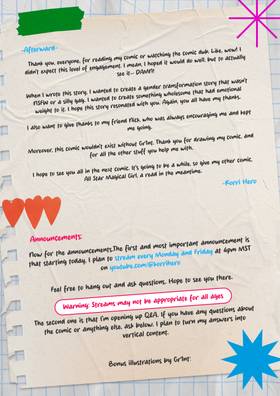 -Afterward-
Thank you, everyone, for reading my comic or watching the comic dub. Like, wow! I
didn't expect this level of engagement. I mean, I hoped it would do well, but to actually
see it-- DAMN!
When I wrote this story, I wanted to create a gender transformation story that wasn't
NSFW or a silly gag. I wanted to create something wholesome that had emotional
weight to it. I hope this story resonated with you. Again, you all have my thanks.
I also want to give thanks to my friend Flick, who was always encouraging me and kept
me going.
Moreover, this comic wouldn't exist without Gr1nt. Thank you for drawing my comic, and
for all the other stuff you help me with.
I hope to see you all in the next comic. It's going to be a while, so give my other comic,
All Star Magical Girl, a read in the meantime.
-Korri Hero
Announcements:
Now for the announcements.The first and most important announcement is
that starting today, I plan to stream every Monday and Friday at 6pm MST
on youtube.com/@korrihero
Feel free to hang out and ask questions. Hope to see you there.
Warning: Streams may not be appropriate for all ages
The second one is that I'm opening up Q&A. If you have any questions about
the comic or anything else, ask below. I plan to turn my answers into
vertical content.
Bonus illustrations by Gr1nt: